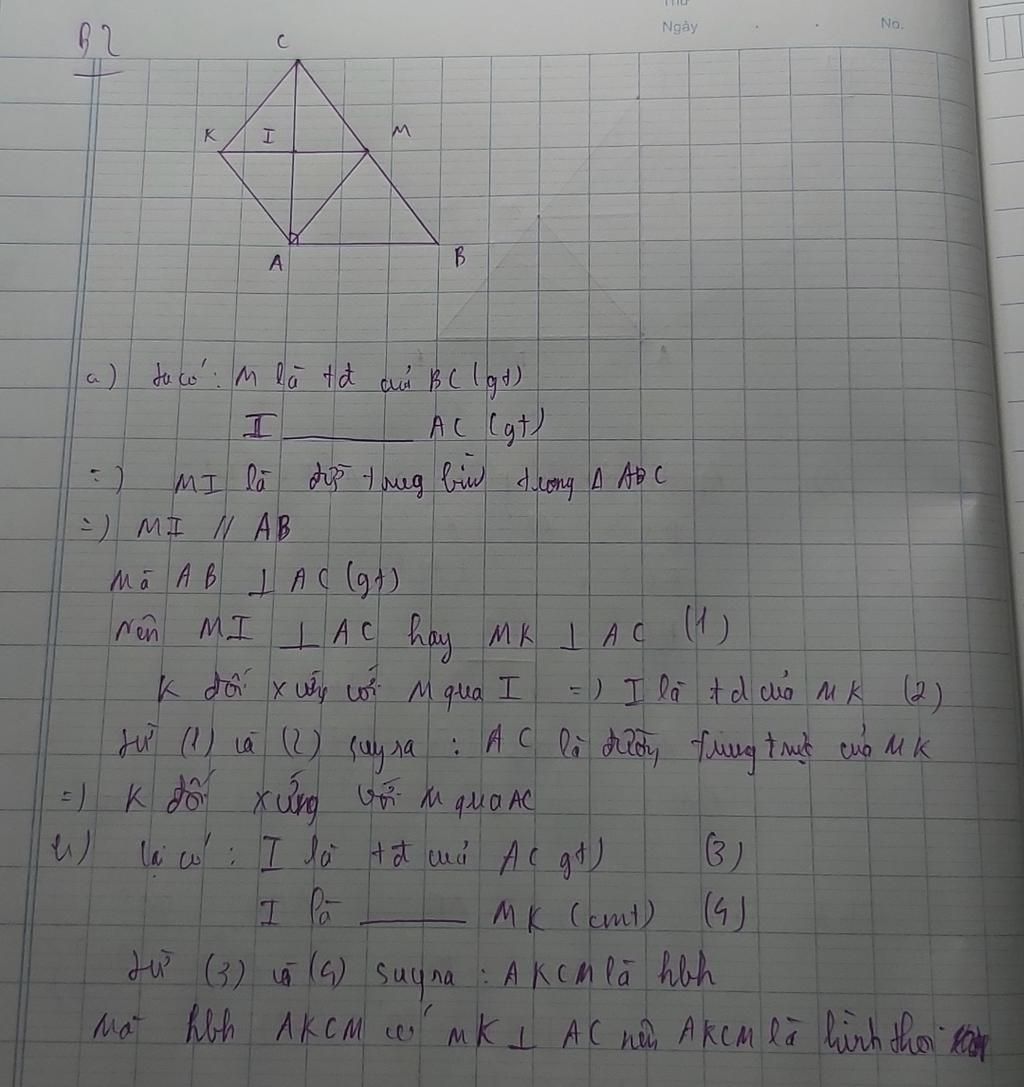 Thứ
Ngày . . No.
B2
C
K I M
A B
a) ta có: M là tđ của BC (gt)
I ______ AC (gt)
=) MI là đg trung bình trong Δ ABC
=) MI // AB
Mà AB ⊥ AC (gt)
Nên MI ⊥ AC hay MK ⊥ AC (1)
K đối xứng với M qua I =) I là tđ của MK (2)
từ (1) và (2) suy ra : AC là đường trung trực của MK
=) K đối xứng với M qua AC
b) Lại có : I là tđ của AC gt) (3)
I là ______ MK (cmt) (4)
từ (3) và (4) suy ra : AKCM là hbh
Mà hbh AKCM có MK ⊥ AC nên AKCM là hình thoi